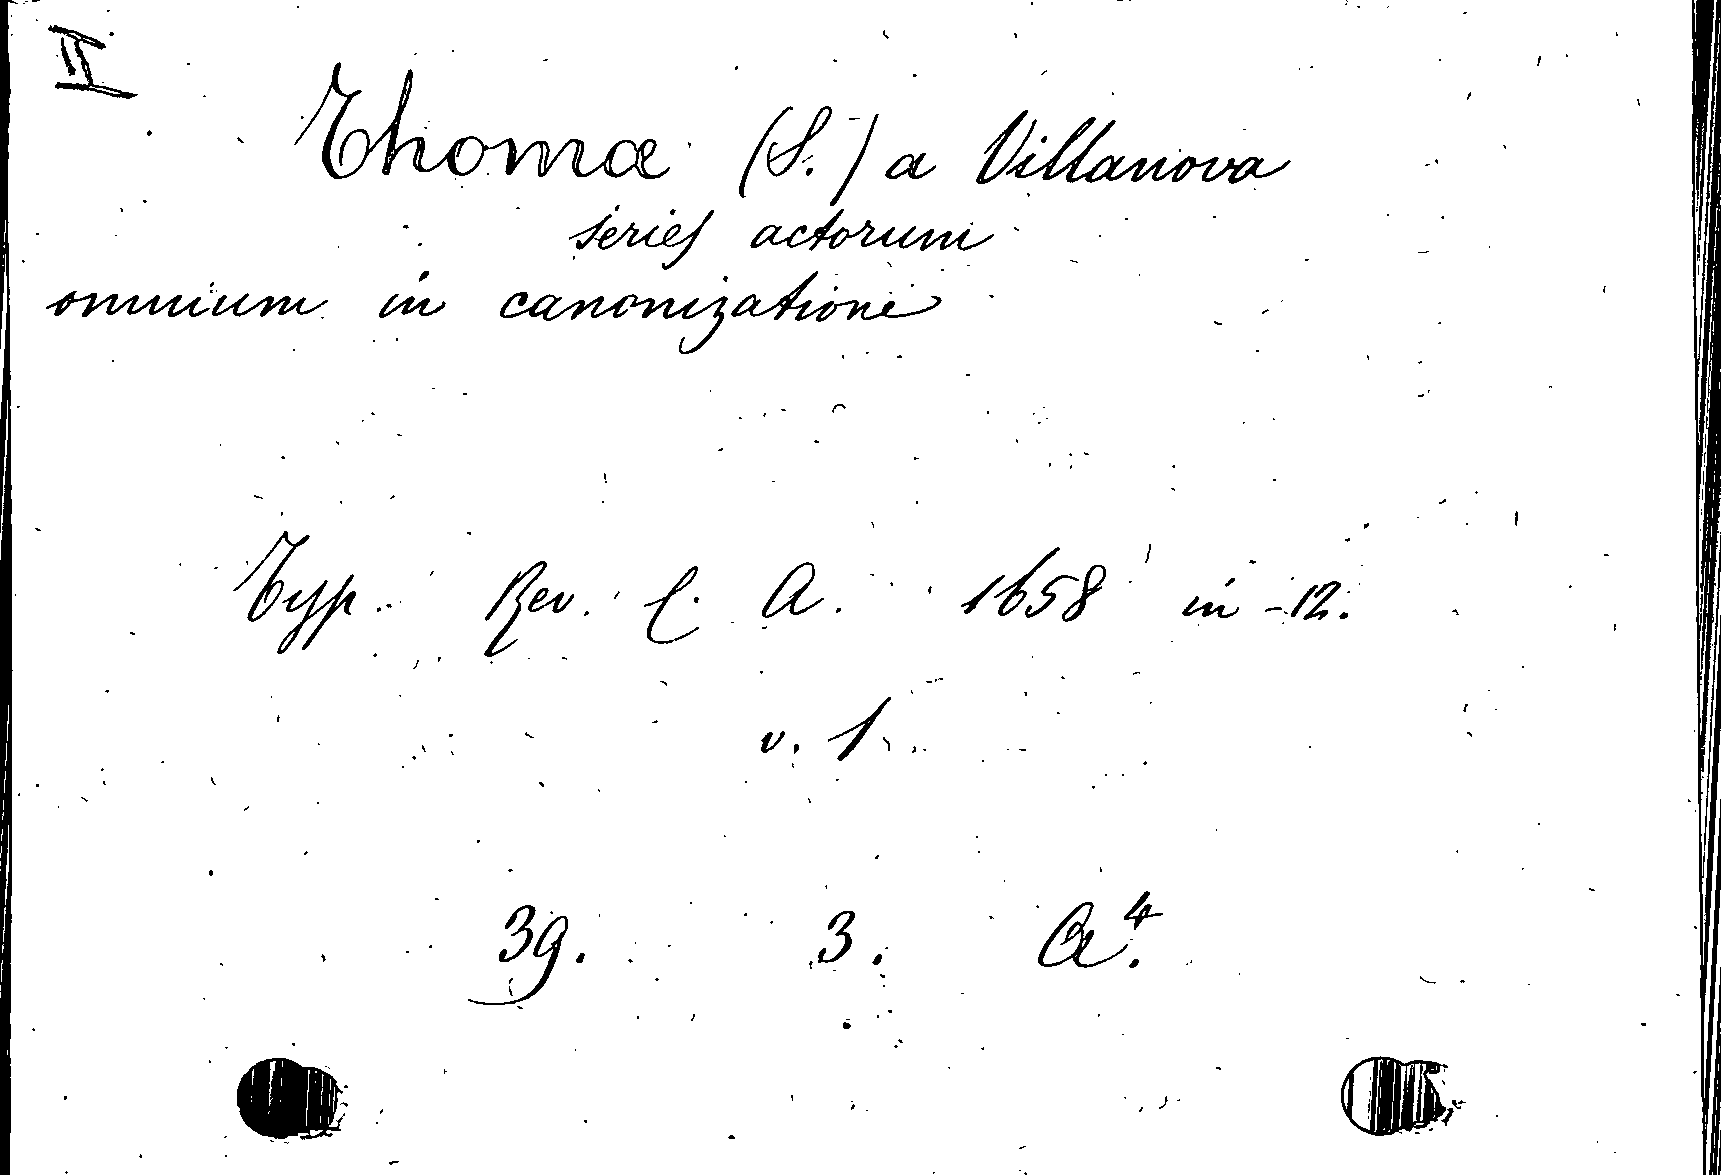 II
Thomæ (S.) a Villanova
series actorum
omnium in canonizatione
Typ. Rev. C. A. 1658 in -12.
v. 1
39. 3. A⁴.